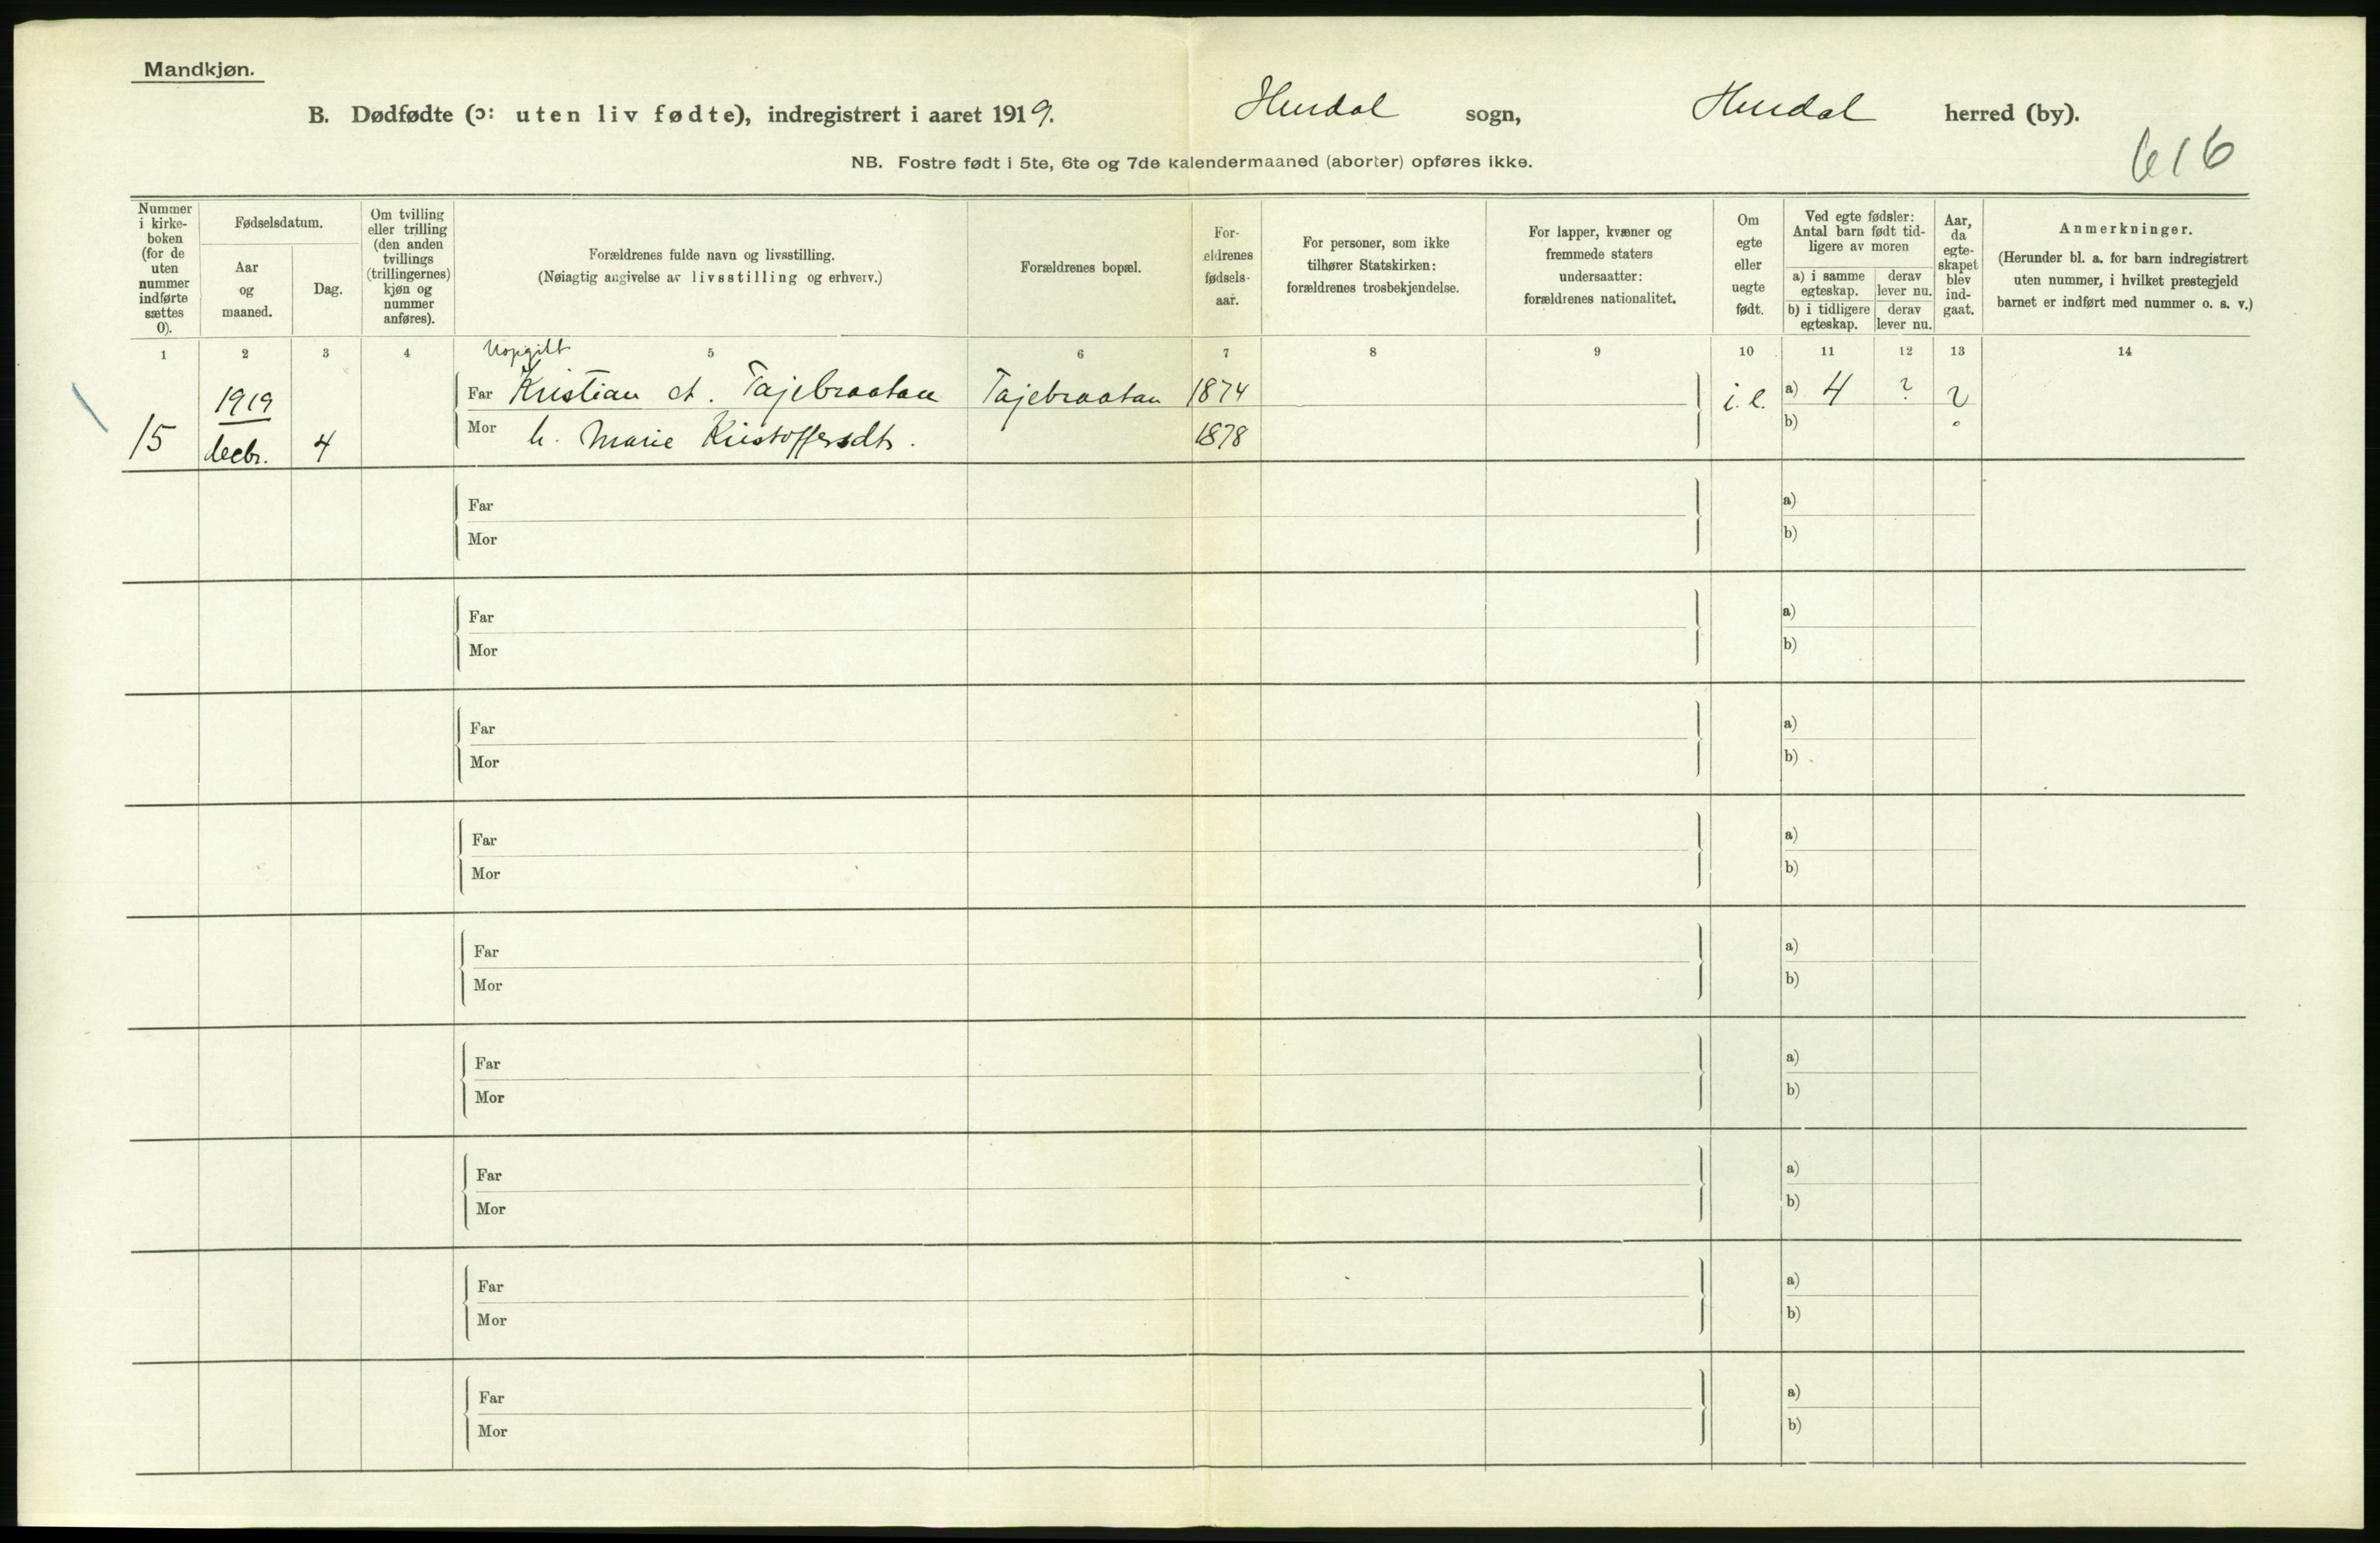 Mandkjøn.
B. Dødfødte (ɔ: uten liv fødte), indregistrert i aaret 1919. Hurdal sogn, Hurdal herred (by).
616
NB. Fostre født i 5te, 6te og 7de kalendermaaned (aborter) opføres ikke.
Nummer
i kirke-
boken
(for de
uten
nummer
indførte
sættes
0).
Fødselsdatum.
Aar
og
maaned.
Dag.
Om tvilling
eller trilling
(den anden
tvillings
(trillingernes)
kjøn og
nummer
anføres).
Forældrenes fulde navn og livsstilling.
(Nøiagtig angivelse av livsstilling og erhverv.)
Forældrenes bopæl.
For-
ældrenes
fødsels-
aar.
For personer, som ikke
tilhører Statskirken:
forældrenes trosbekjendelse.
For lapper, kvæner og
fremmede staters
undersaatter:
forældrenes nationalitet.
Om
egte
eller
uegte
født.
Ved egte fødsler:
Antal barn født tid-
ligere av moren
a) i samme
egteskap.
derav
lever nu.
b) i tidligere
egteskap.
derav
lever nu.
Aar,
da
egte-
skapet
blev
ind-
gaat.
Anmerkninger.
(Herunder bl. a. for barn indregistrert
uten nummer, i hvilket prestegjeld
barnet er indført med nummer o. s. v.)
1 2 3 4 5 6 7 8 9 10 11 12 13 14
Uopgitt
1919
Far Kristian A. Tajebraatan Tajebraatan 1874 i. e. a) 4 ? ?
15 decbr. 4 Mor h. Marie Kristoffersdtr. 1878 b)
Far a)
Mor b)
Far a)
Mor b)
Far a)
Mor b)
Far a)
Mor b)
Far a)
Mor b)
Far a)
Mor b)
Far a)
Mor b)
Far a)
Mor b)
Far a)
Mor b)